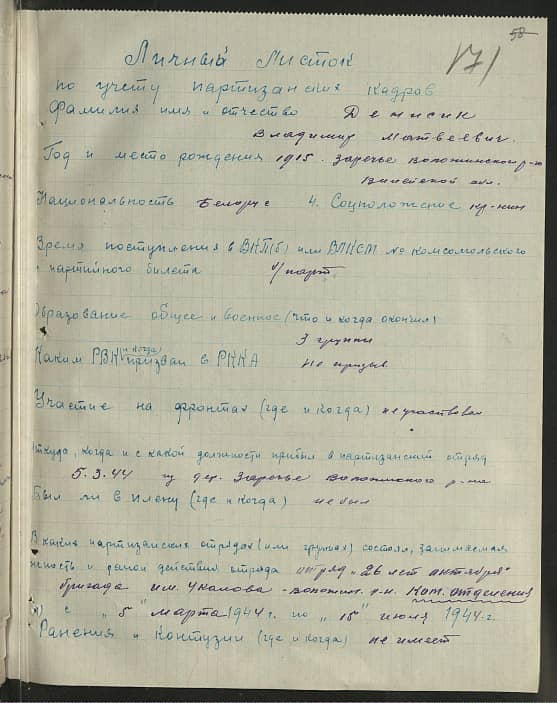 58
171
Личный Листок
по учету партизанских кадров
Фамилия имя и отчество Денисик
Владимир Матвеевич.
Год и место рождения 1915. Заречье Воложинского р-на
Вилейской обл.
Национальность Беларус 4. Соцположение кр-нин
Время поступления в ВКП(б) или ВЛКСМ № комсомольского
партийного билета б/парт.
Образование общее и военное (что и когда окончил)
3 группы
Каким РВК (и когда) призван в РККА не призыв
Участие на фронтах (где и когда) не участвовал
Откуда, когда и с какой должности прибыл в партизанский отряд
5.3.44 из дер. Заречье Воложинского р-на
Был ли в плену (где и когда) не был
В каких партизанских отрядах (или группах) состоял, занимаемая
и район действия отряда отряд "26 лет октября"
бригада им. Чкалова - воложин. р-н. Ком. отделения
с "5" марта 1944 г. по "15" июля 1944 г.
Ранения и контузии (где и когда) не имеет